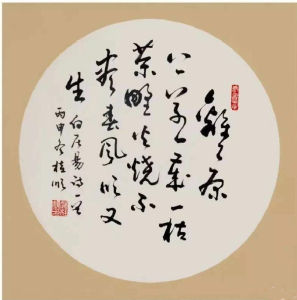 離々原
上草一歲一枯
榮野火燒不
盡春風吹又
生 白居易诗一首
丙申冬桂顺